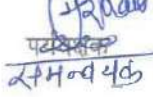 पर्यवेक्षक
समन्वयक